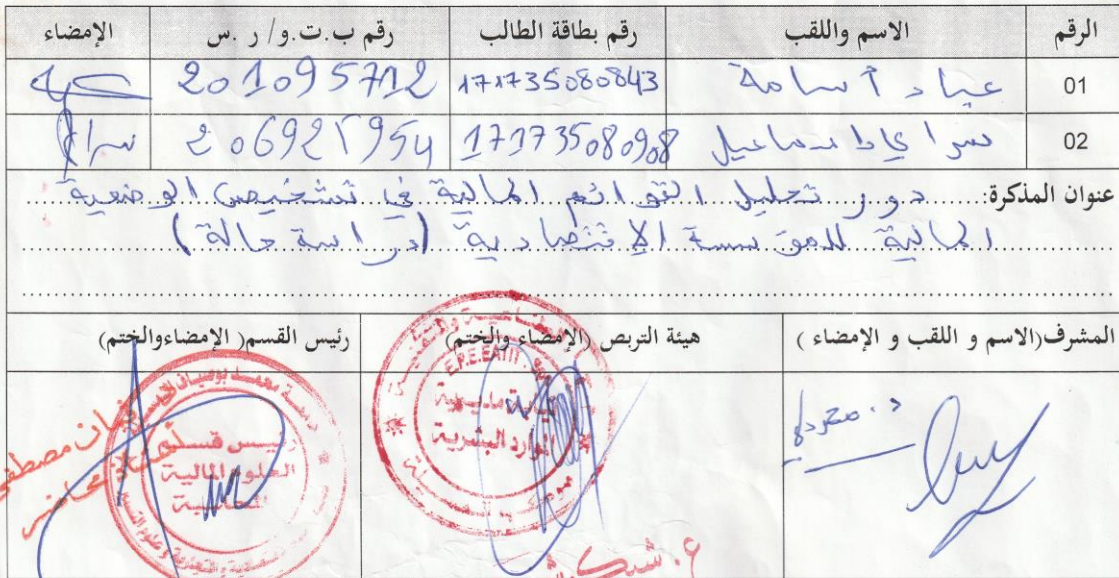 الرقم الاسم واللقب رقم بطاقة الطالب رقم ب.ت.و/ ر .س الإمضاء
01 عياد أسامة 171735080843 201095712
02 اسماعيل 171735080908 206921954
عنوان المذكرة: دور تحليل القوائم المالية في تشخيص الوضعية
المالية للمؤسسة الإقتصادية (دراسة حالة)
المشرف(الاسم و اللقب و الإمضاء ) هيئة التربص (الإمضاء والختم) رئيس القسم( الإمضاءوالختم)
د.
E.P.E.EATIT
الموارد البشرية
رئيس قسم
العلوم المالية
مصطفى